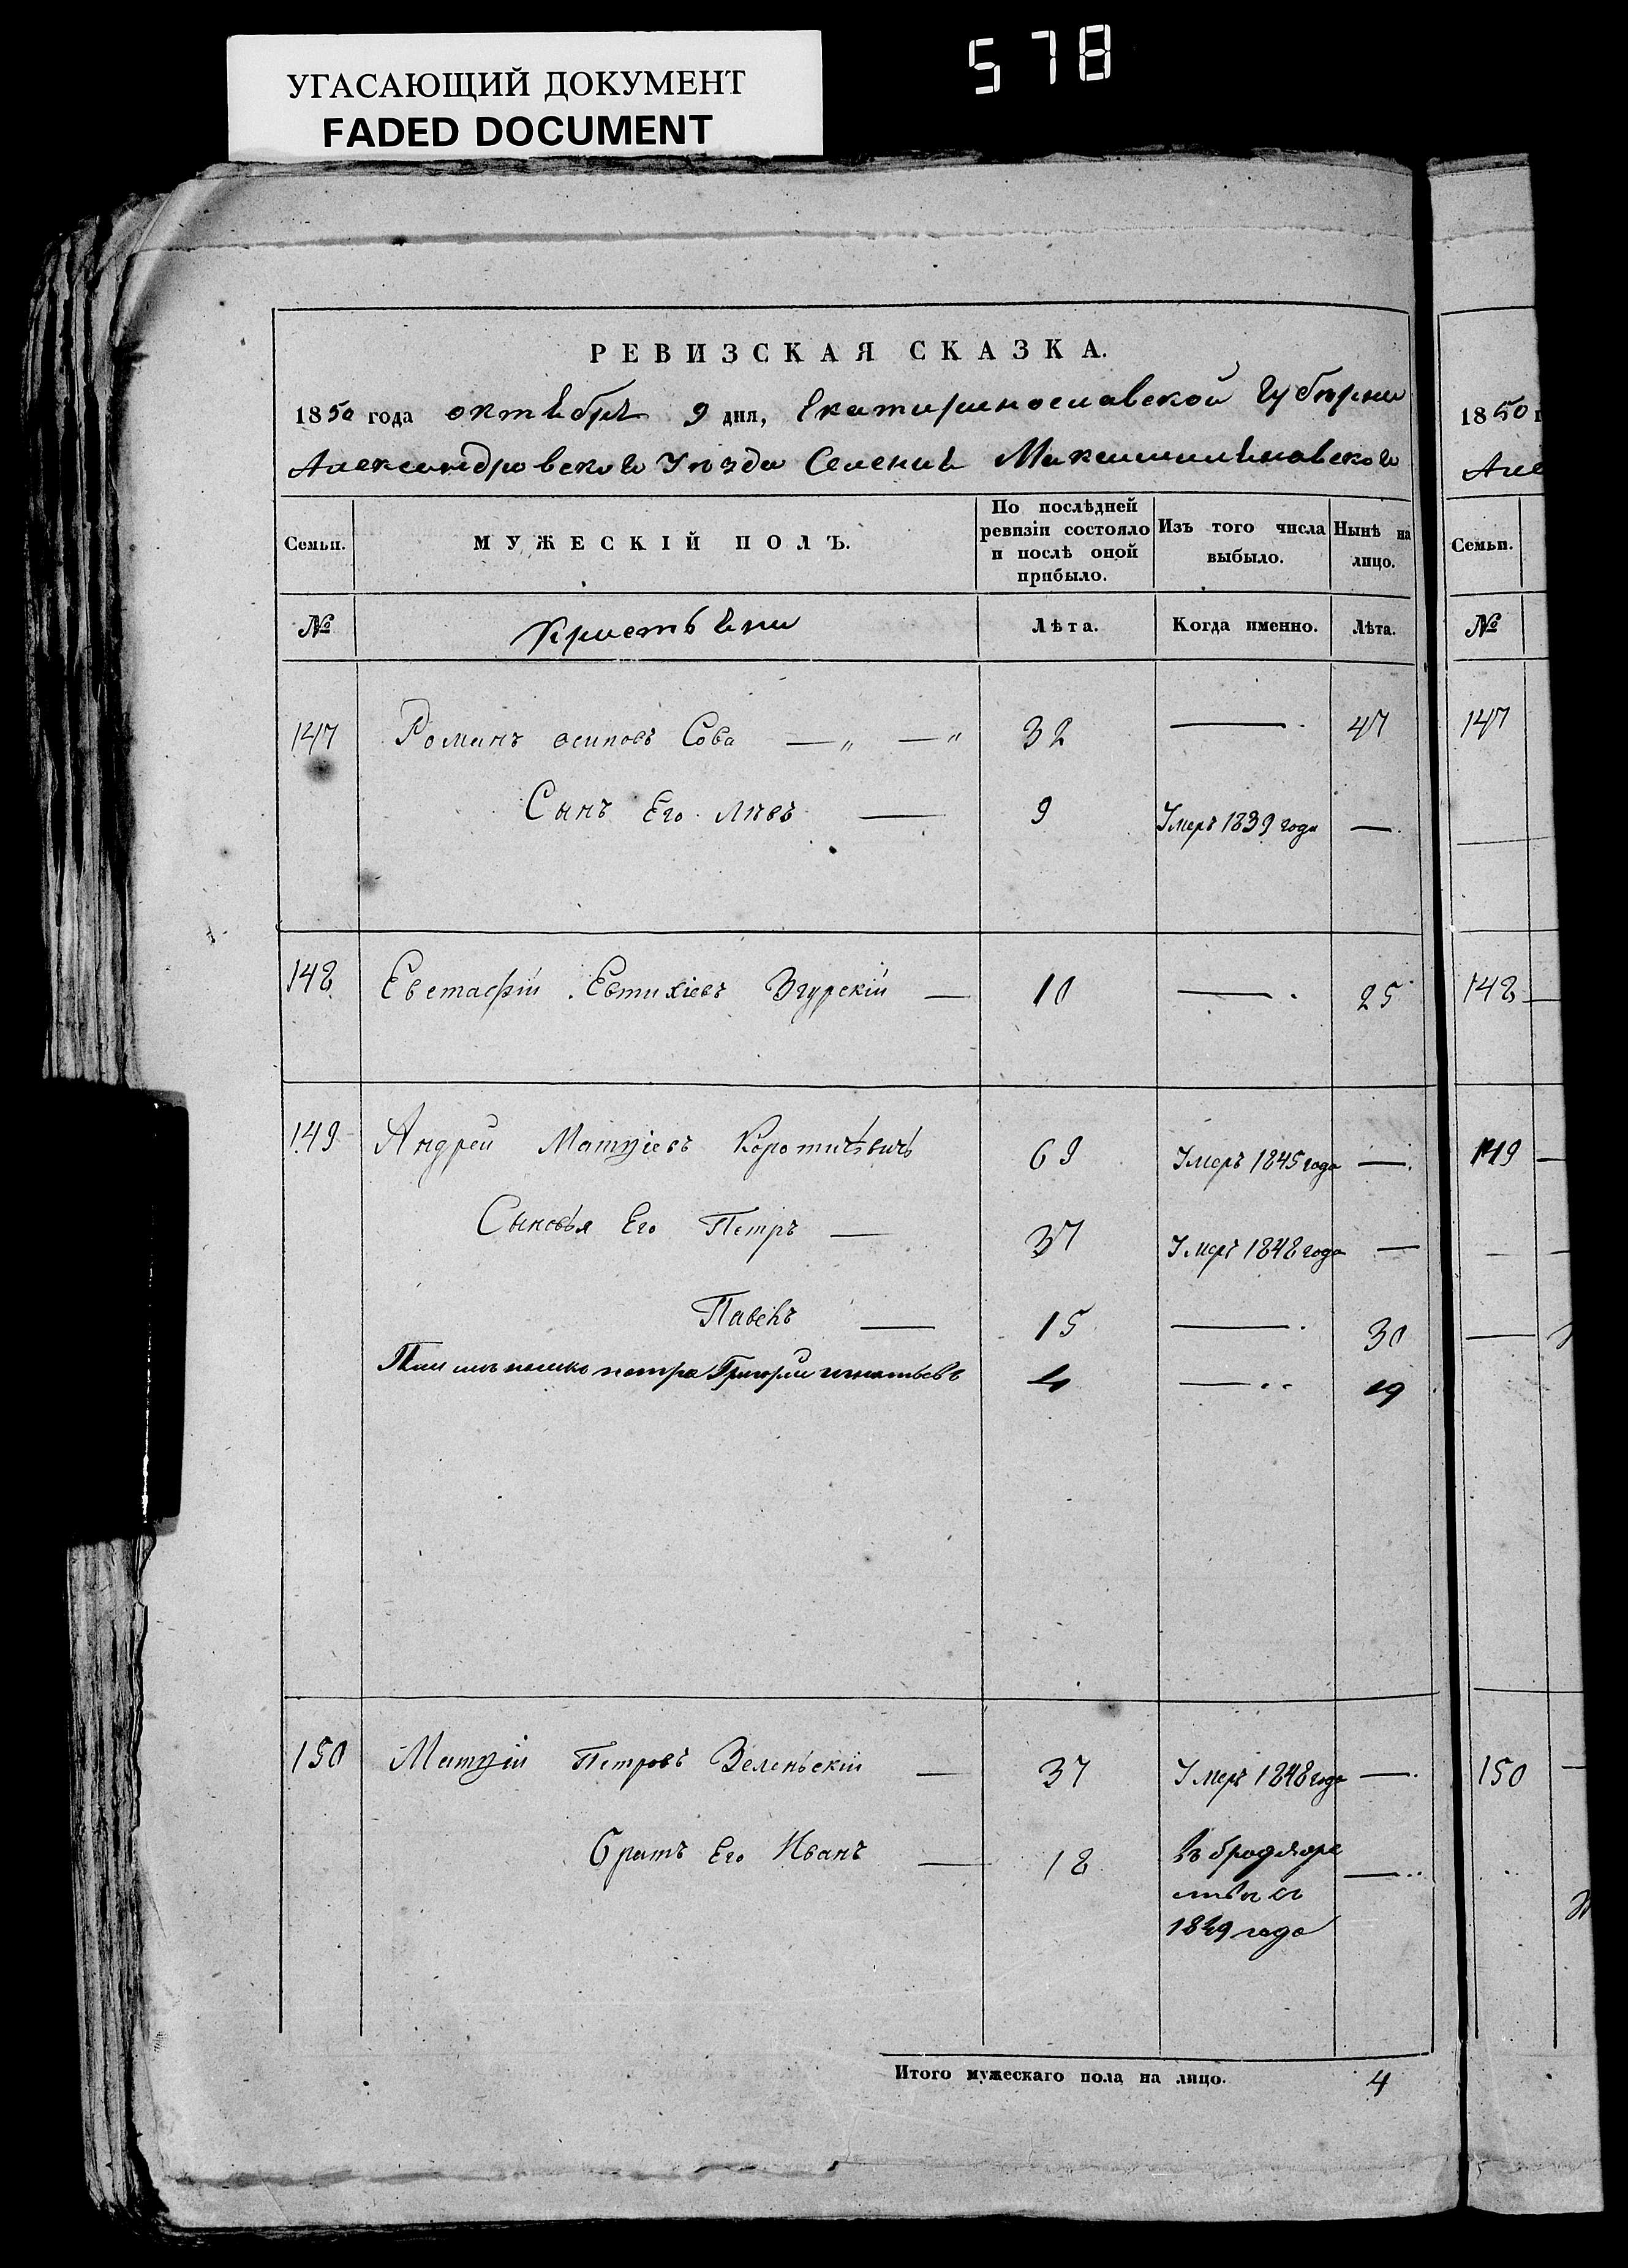 УГАСАЮЩИЙ ДОКУМЕНТ
FADED DOCUMENT
578
РЕВИЗСКАЯ СКАЗКА.
1850 года октября 9 дня, Екатеринославской Губернии
Александровского Уѣзда Селения Максимильяновского
Семьи.
МУЖЕСКІЙ ПОЛЪ.
По послѣдней ревизіи состояло и послѣ оной прибыло.
Изъ того числа выбыло.
Нынѣ на лицо.
№ Крестьяни Лѣта. Когда именно. Лѣта.
147 Романъ осиповъ Сова — „ — „ 32 — 47
Сынъ Его Лѣвъ — 9 Умеръ 1839 года —
148 Евстафій Евтихіевъ Згурскій — 10 — 25
149 Андрей Матвіевъ 69 Умеръ 1845 года —
Сыновья Его Петръ — 37 Умеръ 1848 года —
Павелъ — 15 — 30
петра Григорій игнатьевъ 4 — 19
150 Матвій Петровъ Зеленьскій — 37 Умеръ 1848 года —
Братъ Его Иванъ — 18 Въ бродяже
ствѣ съ
1849 года
Итого мужескаго пола на лицо. 4
1850 г
Але
Семьи.
№
147
148
149
150